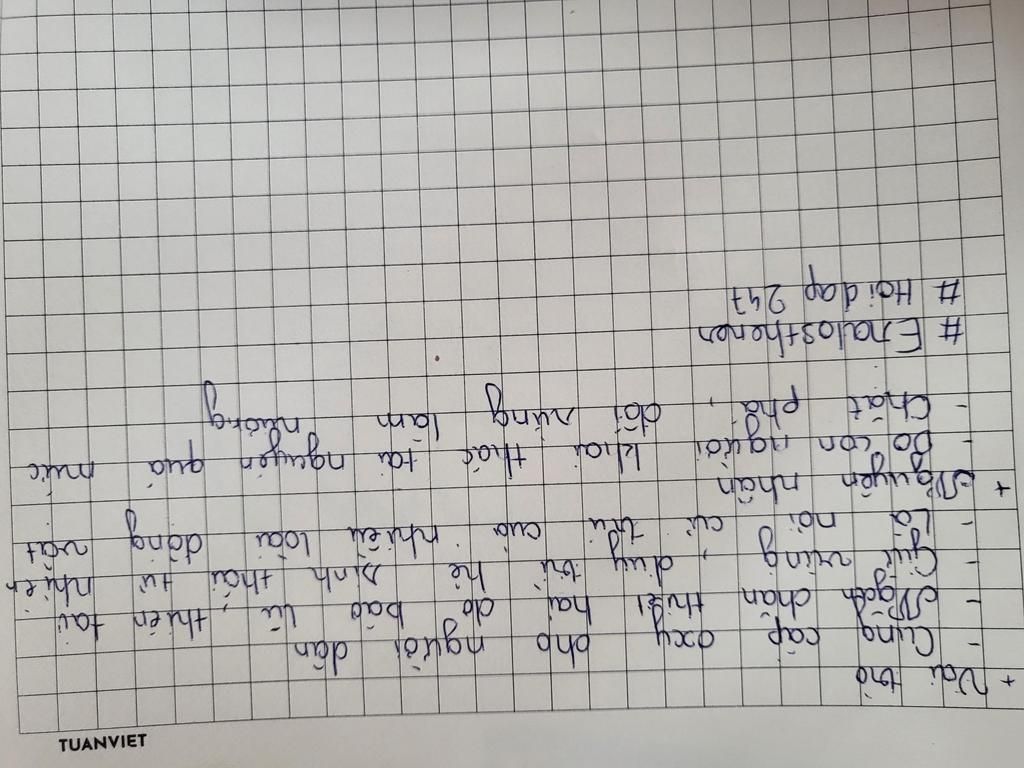 + Vai trò
- Cung cấp oxy cho người dân
- Ngăn chặn thiệt hai do bão lũ, thiên tai
- Giữ vững, duy trì hệ sinh thái tử nhiên
- Là nơi cư trú của nhiều loài động vật
+ Nguyên nhân
- Do con người khai thác tài nguyên quá mức
- Chặt phá, đốt rừng làm nương
# Eratosthenes
# Hoidap 247
TUANVIET